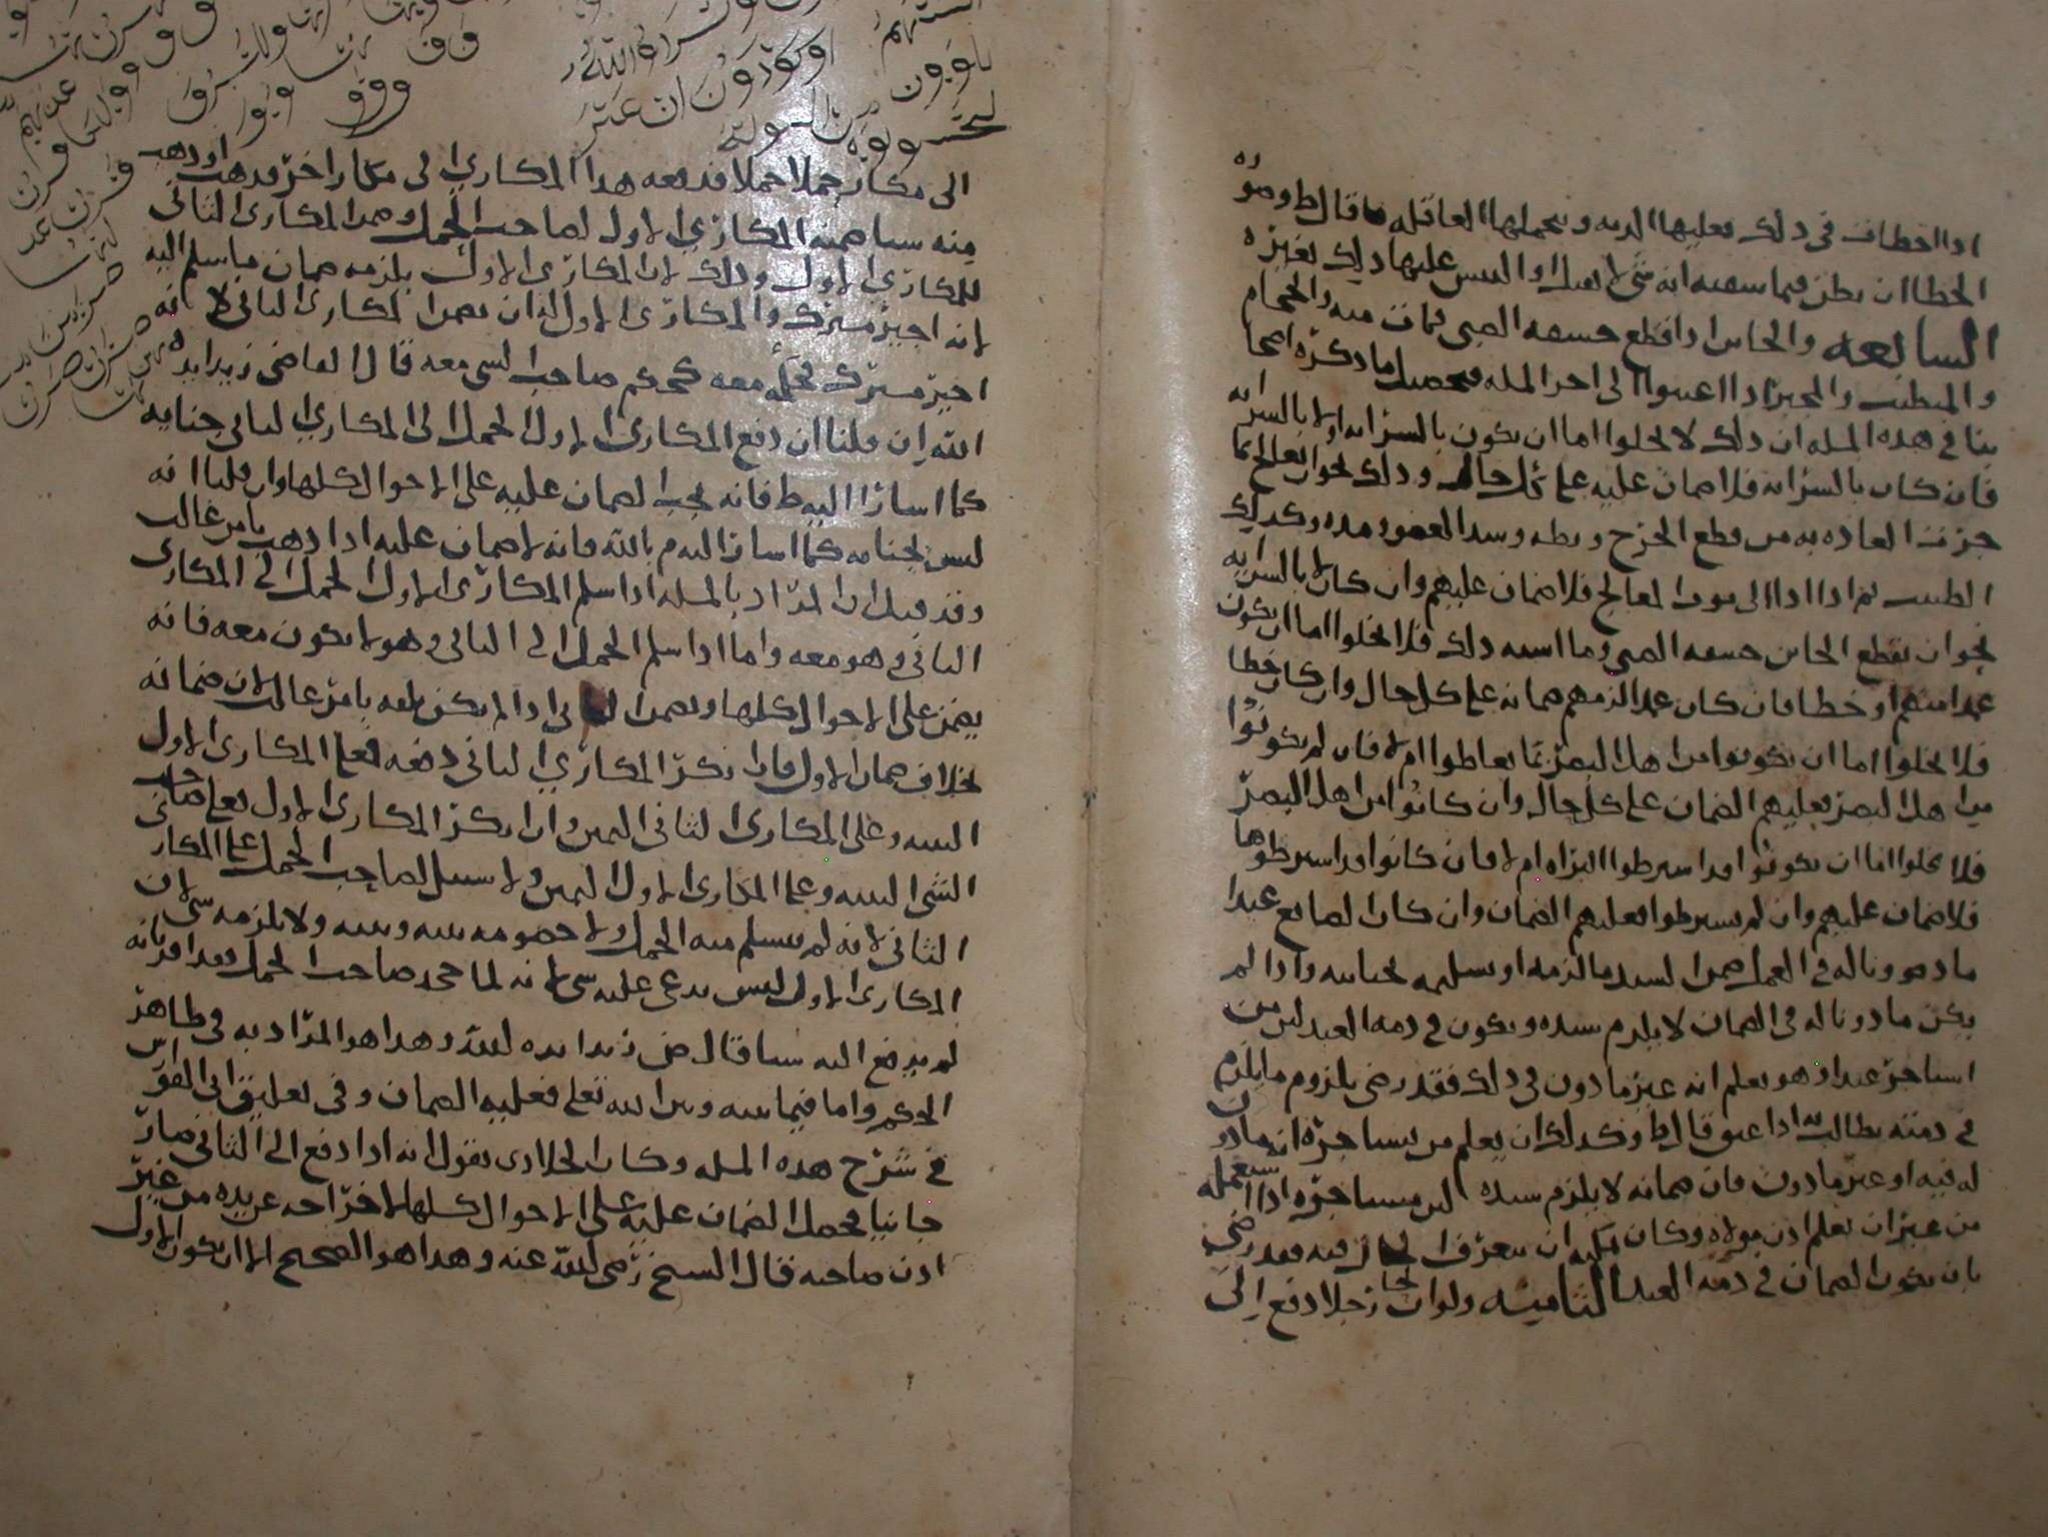 اذا اخطات في ذلك فعليها الديه وتحملها العاقله قال ط وصوره
الخطا ان يظن فيما سقته انه شي لا يقتل او التبس عليها ذلك بغيره
السابعه والخاتن اذا قطع حشفه الصبي فمات منه والحجام
والمتطبب والمجبر اذا اعنتوا الى اخر المسله فحصل ما ذكره اصحا
بنا في هذه المسله ان ذلك لا يخلوا اما ان يكون بالسرايه او لا بالسرايه
فان كان بالسرايه فلا ضمان عليه على كل حال وذلك نحو ان يعالج بما
جرت العاده به من قطع الجرح وبطه وشد العضو ومده وكذلك
الطبيب ثم اذا ادا الى موت المعالج فلا ضمان عليهم وان كان لا بالسرايه
نحو ان يقطع الخاتن حشفه الصبي وما اشبه ذلك فلا يخلوا اما ان يكون
عمدا منهم او خطا فان كان عمدا لزمهم ضمانه على كل حال وان كان خطا
فلا يخلوا اما ان يكونوا من اهل البصر بما يعاطوا ام لا فان لم يكونوا
من اهل البصر فعليهم الضمان على كل حال وان كانوا من اهل البصر
فلا يخلوا اما ان يكونوا قد اشترطوا البراه ام لا فان كانوا قد اشترطوها
فلا ضمان عليهم وان لم يشترطوا فعليهم الضمان وان كان الصانع عبدا
ماذونا له في العمل ضمن السيد ما لزمه او تسليمه بجنايته واذا لم
يكن ماذونا له في الضمان لا يلزم سيده ويكون في ذمه العبد لان من
استاجر عبدا وهو يعلم انه غير ماذون في ذلك فقد رضي بلزوم ما يلزم
في ذمته يطالب به اذا عتق قال ط وكذلك ان يعلم من يستاجره انه ماذون
له فيه او غير ماذون فان ضمانه لا يلزم سيده لان مستاجره اذا استعمله
من غير ان يعلم اذن مولاه وكان يمكنه ان يتعرف الحال فيه فقد رضي
بان يكون الضمان في ذمه العبد الثامنه ولو ان رجلا دفع الى
الى مكار حملا فدفعه هذا المكاري الى مكار اخر فذهب او ذهب
منه شيا ضمنه المكاري الاول لصاحب الحمل وضمن المكاري الثاني
للمكاري الاول وذلك لان المكاري الاول يلزمه ضمان ما سلم اليه
لانه اجير مشترك والمكاري الاول له ان يضمن المكاري الثاني لانه
اجير مشترك فحكمه معه كحكم صاحب الشي معه قال القاضي زيد ايده
الله ان قلنا ان دفع المكاري الاول الحمل الى المكاري الثاني جنايه
كما اشار اليه ط فانه يجب الضمان عليه على الاحوال كلها وان قلنا انه
ليس بجنايه كما اشار اليه م بالله فانه لا ضمان عليه اذا ذهب بامر غالب
وقد قيل ان المراد بالمسله اذا سلم المكاري الاول الحمل الى المكاري
الثاني وهو معه واما اذا سلم الحمل الى الثاني وهو لا يكون معه فانه
يضمن على الاحوال كلها ويضمن الثاني اذا لم يكن تلفه بامر غالب لان ضمانه
بخلاف ضمان الاول فان انكر المكاري الثاني دفعه فعلى المكاري الاول
البينه وعلى المكاري الثاني اليمين وان انكر المكاري الاول فعلى صاحب
الشي البينه وعلى المكاري الاول اليمين ولا سبيل لصاحب الحمل على المكاري
الثاني لانه لم يتسلم منه الحمل ولا خصومه بينه وبينه ولا يلزمه شي لان
المكاري الاول ليس يدعي عليه شي لانه لما جحد صاحب الحمل فقد اقر بانه
لم يدفع اليه شيا قال ض زيد ايده الله وهذا هو المراد به في ظاهر
الحكم واما فيما بينه وبين الله تعلى فعليه الضمان وفي تعليق ابي الفوارس
في شرح هذه المسله وكان الجلادي يقول انه اذا دفع الى الثاني صار
جانيا فحصل الضمان عليه على الاحوال كلها لاخراجه عن يده من غير
اذن صاحبه قال الشيخ رضي الله عنه وهذا هو الصحيح الا ان يكون الاول